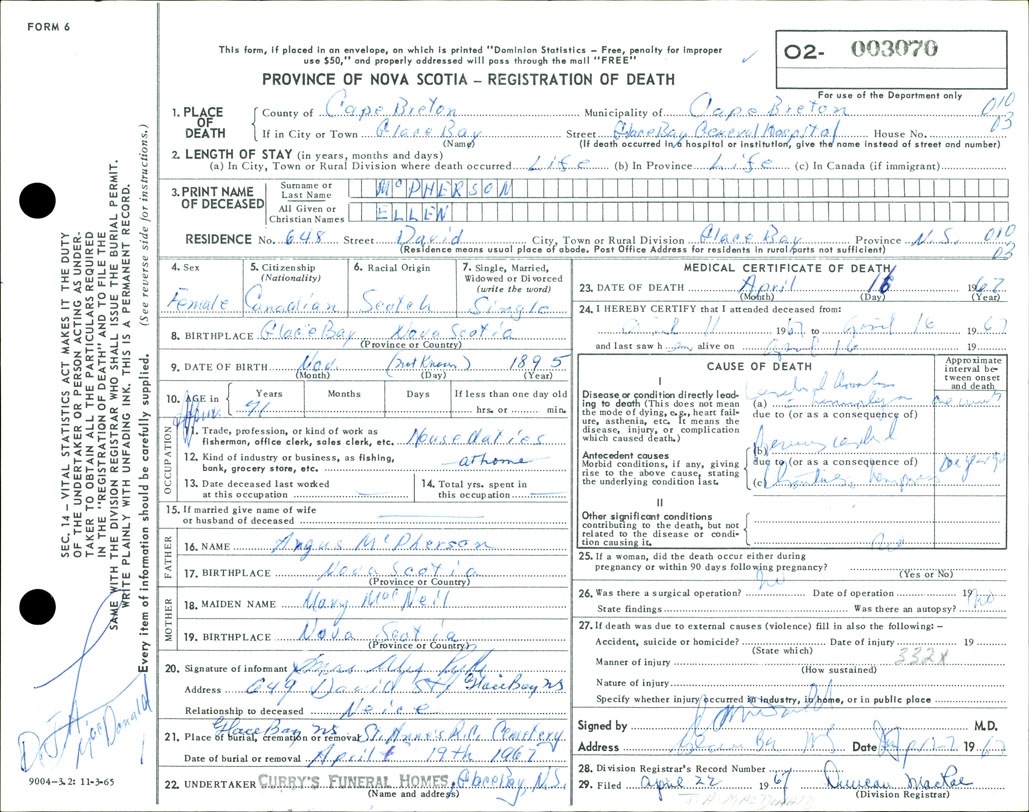 FORM 6
This form, if placed in an envelope, on which is printed "Dominion Statistics – Free, penalty for improper
use $50," and properly addressed will pass through the mail "FREE"
PROVINCE OF NOVA SCOTIA – REGISTRATION OF DEATH
O2- 003070
For use of the Department only
1. PLACE OF DEATH
County of Cape Breton Municipality of Cape Breton 010
If in City or Town Glace Bay Street Glace Bay General Hospital House No. 03
(Name) (If death occurred in a hospital or institution, give the name instead of street and number)
2. LENGTH OF STAY (in years, months and days)
(a) In City, Town or Rural Division where death occurred Life (b) In Province Life (c) In Canada (if immigrant)
3. PRINT NAME OF DECEASED
Surname or Last Name McPHERSON
All Given or Christian Names ELLEN
RESIDENCE No. 648 Street David City, Town or Rural Division Glace Bay Province N.S. 010
(Residence means usual place of abode. Post Office Address for residents in rural parts not sufficient) 03
4. Sex Female
5. Citizenship (Nationality) Canadian
6. Racial Origin Scotch
7. Single, Married, Widowed or Divorced (write the word) Single
8. BIRTHPLACE Glace Bay Nova Scotia
(Province or Country)
9. DATE OF BIRTH Nov (not Known) 1895
(Month) (Day) (Year)
10. AGE in Years Months Days If less than one day old
71 hrs. or min.
OCCUPATION
11. Trade, profession, or kind of work as
fisherman, office clerk, sales clerk, etc. House duties
12. Kind of industry or business, as fishing,
bank, grocery store, etc. at home
13. Date deceased last worked
at this occupation
14. Total yrs. spent in
this occupation
15. If married give name of wife
or husband of deceased
FATHER
16. NAME Angus McPherson
17. BIRTHPLACE Nova Scotia
(Province or Country)
MOTHER
18. MAIDEN NAME Mary MacNeil
19. BIRTHPLACE Nova Scotia
(Province or Country)
20. Signature of informant Mrs
Address 649 David St Glace Bay NS
Relationship to deceased Neice
Glace Bay NS
21. Place of burial, cremation or removal St. Anne's R.C. Cemetery
Date of burial or removal April 19th 1967
22. UNDERTAKER CURRY'S FUNERAL HOMES, Glace Bay, N.S.
(Name and address)
MEDICAL CERTIFICATE OF DEATH
23. DATE OF DEATH April 16 1967
(Month) (Day) (Year)
24. I HEREBY CERTIFY that I attended deceased from:
April 11 1967 to April 16 1967
and last saw h alive on April 16 19
CAUSE OF DEATH
Approximate interval between onset and death
I
Disease or condition directly leading to death (This does not mean
the mode of dying, e.g., heart failure, asthenia, etc. It means the
disease, injury, or complication
which caused death.)
(a)
due to (or as a consequence of)
(b)
Antecedent causes
Morbid conditions, if any, giving
rise to the above cause, stating
the underlying condition last.
due to (or as a consequence of)
(c)
II
Other significant conditions
contributing to the death, but not
related to the disease or condition causing it.
25. If a woman, did the death occur either during
pregnancy or within 90 days following pregnancy? no
(Yes or No)
26. Was there a surgical operation? Date of operation 19
State findings Was there an autopsy? no
27. If death was due to external causes (violence) fill in also the following:–
Accident, suicide or homicide? Date of injury 19
(State which)
Manner of injury 332X
(How sustained)
Nature of injury
Specify whether injury occurred in industry, in home, or in public place
Signed by M.D.
Address Glace Bay NS Date 1967
28. Division Registrar's Record Number
29. Filed April 22 1967 Duncan MacRae
(Division Registrar)
SEC. 14 – VITAL STATISTICS ACT MAKES IT THE DUTY
OF THE UNDERTAKER OR PERSON ACTING AS UNDERTAKER TO OBTAIN ALL THE PARTICULARS REQUIRED
IN THE "REGISTRATION OF DEATH" AND TO FILE THE
SAME WITH THE DIVISION REGISTRAR WHO SHALL ISSUE THE BURIAL PERMIT.
WRITE PLAINLY WITH UNFADING INK. THIS IS A PERMANENT RECORD.
Every item of information should be carefully supplied. (See reverse side for instructions.)
MacDonald
9004-3.2: 11-3-65